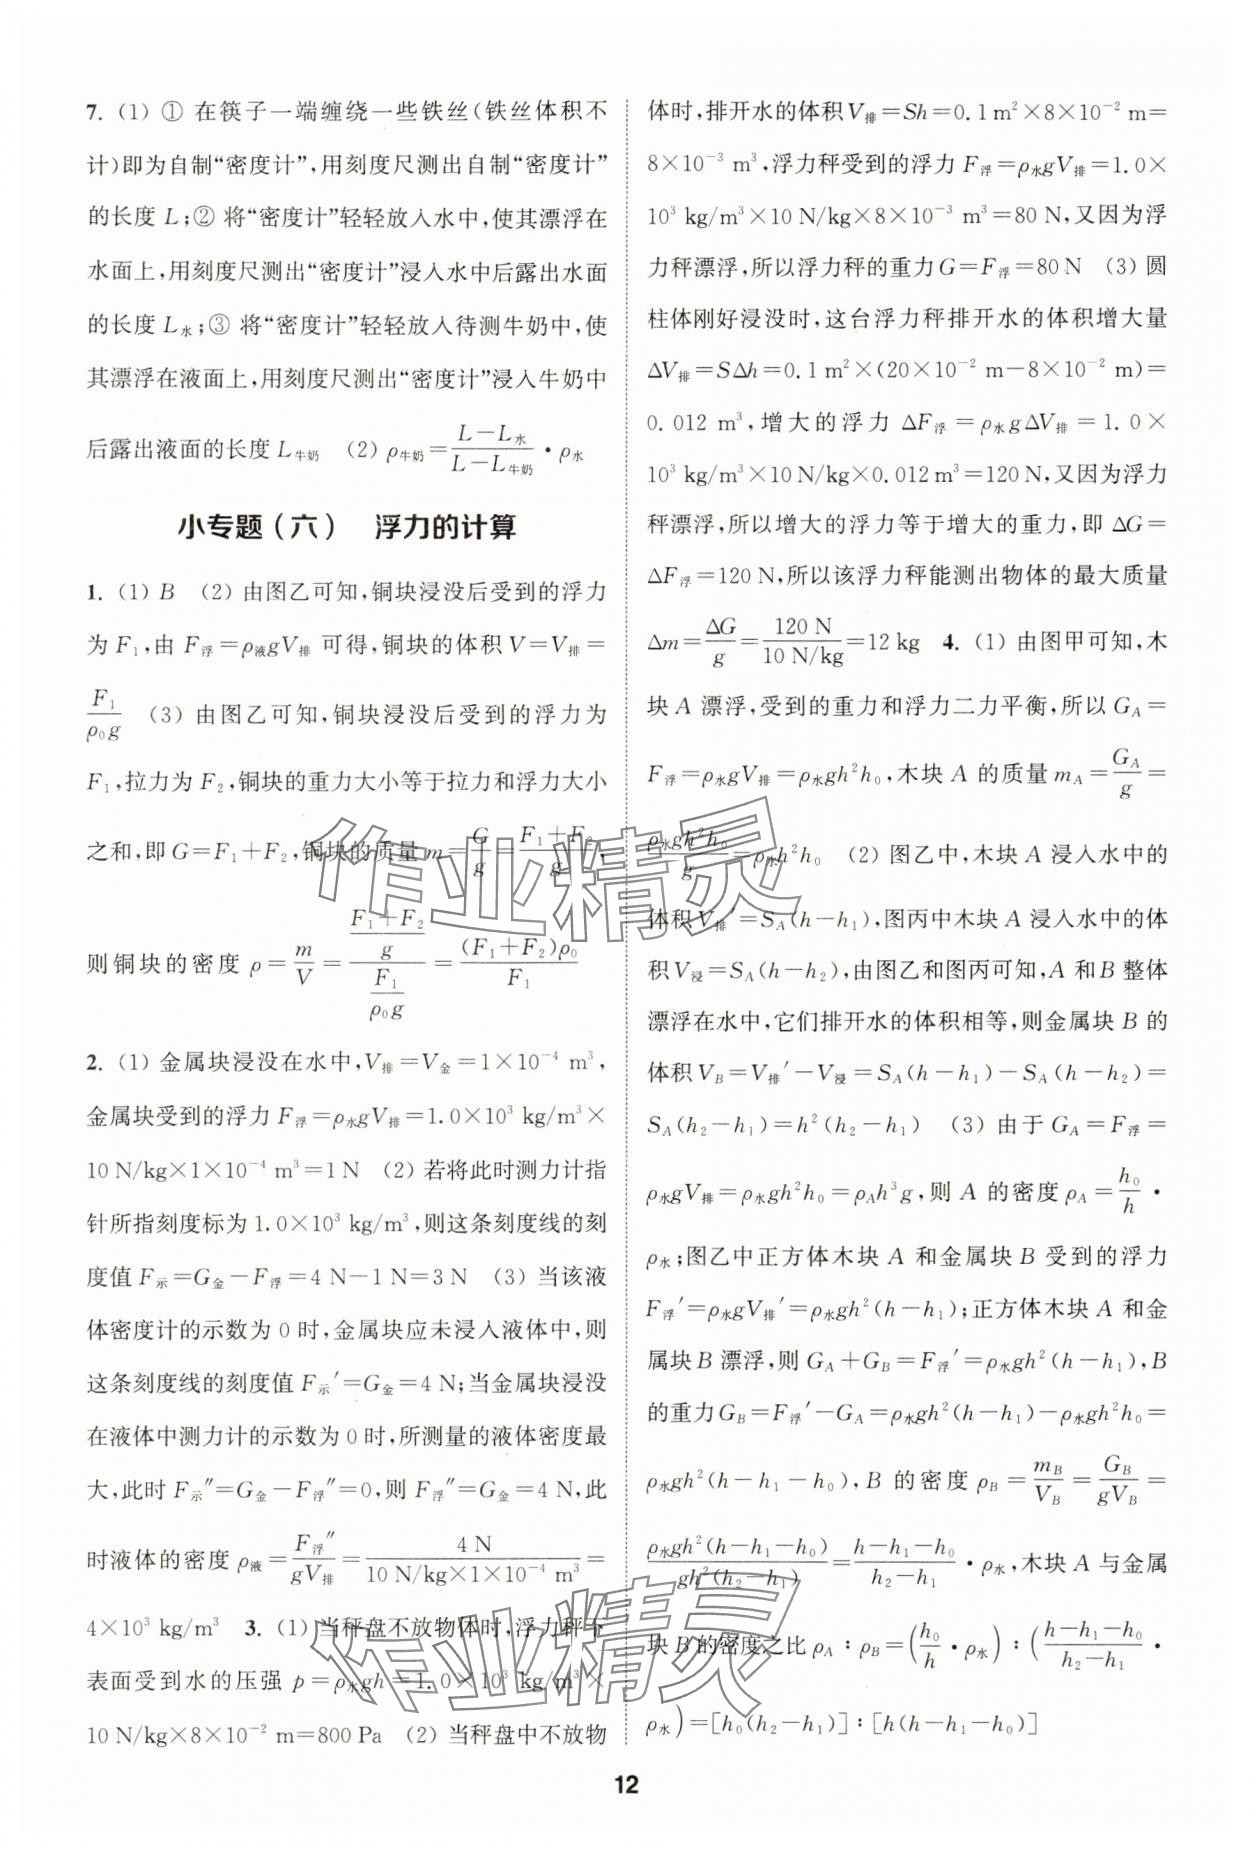 7. (1) ① 在筷子一端缠绕一些铁丝(铁丝体积不
计)即为自制“密度计”,用刻度尺测出自制“密度计”
的长度 L;② 将“密度计”轻轻放入水中,使其漂浮在
水面上,用刻度尺测出“密度计”浸入水中后露出水面
的长度 L水;③ 将“密度计”轻轻放入待测牛奶中,使
其漂浮在液面上,用刻度尺测出“密度计”浸入牛奶中
后露出液面的长度 L牛奶 (2) ρ牛奶=(L-L水)/(L-L牛奶)·ρ水
小专题(六) 浮力的计算
1. (1) B (2) 由图乙可知,铜块浸没后受到的浮力
为 F₁,由 F浮=ρ液gV排 可得,铜块的体积 V=V排=
F₁/(ρ₀g) (3) 由图乙可知,铜块浸没后受到的浮力为
F₁,拉力为 F₂,铜块的重力大小等于拉力和浮力大小
之和,即 G=F₁+F₂,铜块的质量 m=G/g=(F₁+F₂)/g,
则铜块的密度 ρ=m/V=((F₁+F₂)/g)/(F₁/(ρ₀g))=(F₁+F₂)ρ₀/F₁
2. (1) 金属块浸没在水中,V排=V金=1×10⁻⁴ m³,
金属块受到的浮力 F浮=ρ水gV排=1.0×10³ kg/m³×
10 N/kg×1×10⁻⁴ m³=1 N (2) 若将此时测力计指
针所指刻度标为 1.0×10³ kg/m³,则这条刻度线的刻
度值 F示=G金-F浮=4 N-1 N=3 N (3) 当该液
体密度计的示数为 0 时,金属块应未浸入液体中,则
这条刻度线的刻度值 F示′=G金=4 N;当金属块浸没
在液体中测力计的示数为 0 时,所测量的液体密度最
大,此时 F示″=G金-F浮″=0,则 F浮″=G金=4 N,此
时液体的密度 ρ液=F浮″/(gV排)=4 N/(10 N/kg×1×10⁻⁴ m³)=
4×10³ kg/m³ 3. (1) 当秤盘不放物体时,浮力秤下
表面受到水的压强 p=ρ水gh=1.0×10³ kg/m³×
10 N/kg×8×10⁻² m=800 Pa (2) 当秤盘中不放物
体时,排开水的体积 V排=Sh=0.1 m²×8×10⁻² m=
8×10⁻³ m³,浮力秤受到的浮力 F浮=ρ水gV排=1.0×
10³ kg/m³×10 N/kg×8×10⁻³ m³=80 N,又因为浮
力秤漂浮,所以浮力秤的重力 G=F浮=80 N (3) 圆
柱体刚好浸没时,这台浮力秤排开水的体积增大量
ΔV排=SΔh=0.1 m²×(20×10⁻² m-8×10⁻² m)=
0.012 m³,增大的浮力 ΔF浮=ρ水gΔV排=1.0×
10³ kg/m³×10 N/kg×0.012 m³=120 N,又因为浮力
秤漂浮,所以增大的浮力等于增大的重力,即 ΔG=
ΔF浮=120 N,所以该浮力秤能测出物体的最大质量
Δm=ΔG/g=120 N/(10 N/kg)=12 kg 4. (1) 由图甲可知,木
块 A 漂浮,受到的重力和浮力二力平衡,所以 G_A=
F浮=ρ水gV排=ρ水gh²h₀,木块 A 的质量 m_A=G_A/g=
ρ水gh²h₀/g=ρ水h²h₀ (2) 图乙中,木块 A 浸入水中的
体积 V排′=S_A(h-h₁),图丙中木块 A 浸入水中的体
积 V浸=S_A(h-h₂),由图乙和图丙可知,A 和 B 整体
漂浮在水中,它们排开水的体积相等,则金属块 B 的
体积 V_B=V排′-V浸=S_A(h-h₁)-S_A(h-h₂)=
S_A(h₂-h₁)=h²(h₂-h₁) (3) 由于 G_A=F浮=
ρ水gV排=ρ水gh²h₀=ρ_Ah³g,则 A 的密度 ρ_A=h₀/h·
ρ水;图乙中正方体木块 A 和金属块 B 受到的浮力
F浮′=ρ水gV排′=ρ水gh²(h-h₁);正方体木块 A 和金
属块 B 漂浮,则 G_A+G_B=F浮′=ρ水gh²(h-h₁),B
的重力 G_B=F浮′-G_A=ρ水gh²(h-h₁)-ρ水gh²h₀=
ρ水gh²(h-h₁-h₀),B 的密度 ρ_B=m_B/V_B=G_B/(gV_B)=
ρ水gh²(h-h₁-h₀)/(gh²(h₂-h₁))=(h-h₁-h₀)/(h₂-h₁)·ρ水,木块 A 与金属
块 B 的密度之比 ρ_A∶ρ_B=(h₀/h·ρ水)∶((h-h₁-h₀)/(h₂-h₁)·
ρ水)=[h₀(h₂-h₁)]∶[h(h-h₁-h₀)]
作业精灵
作业精灵
12